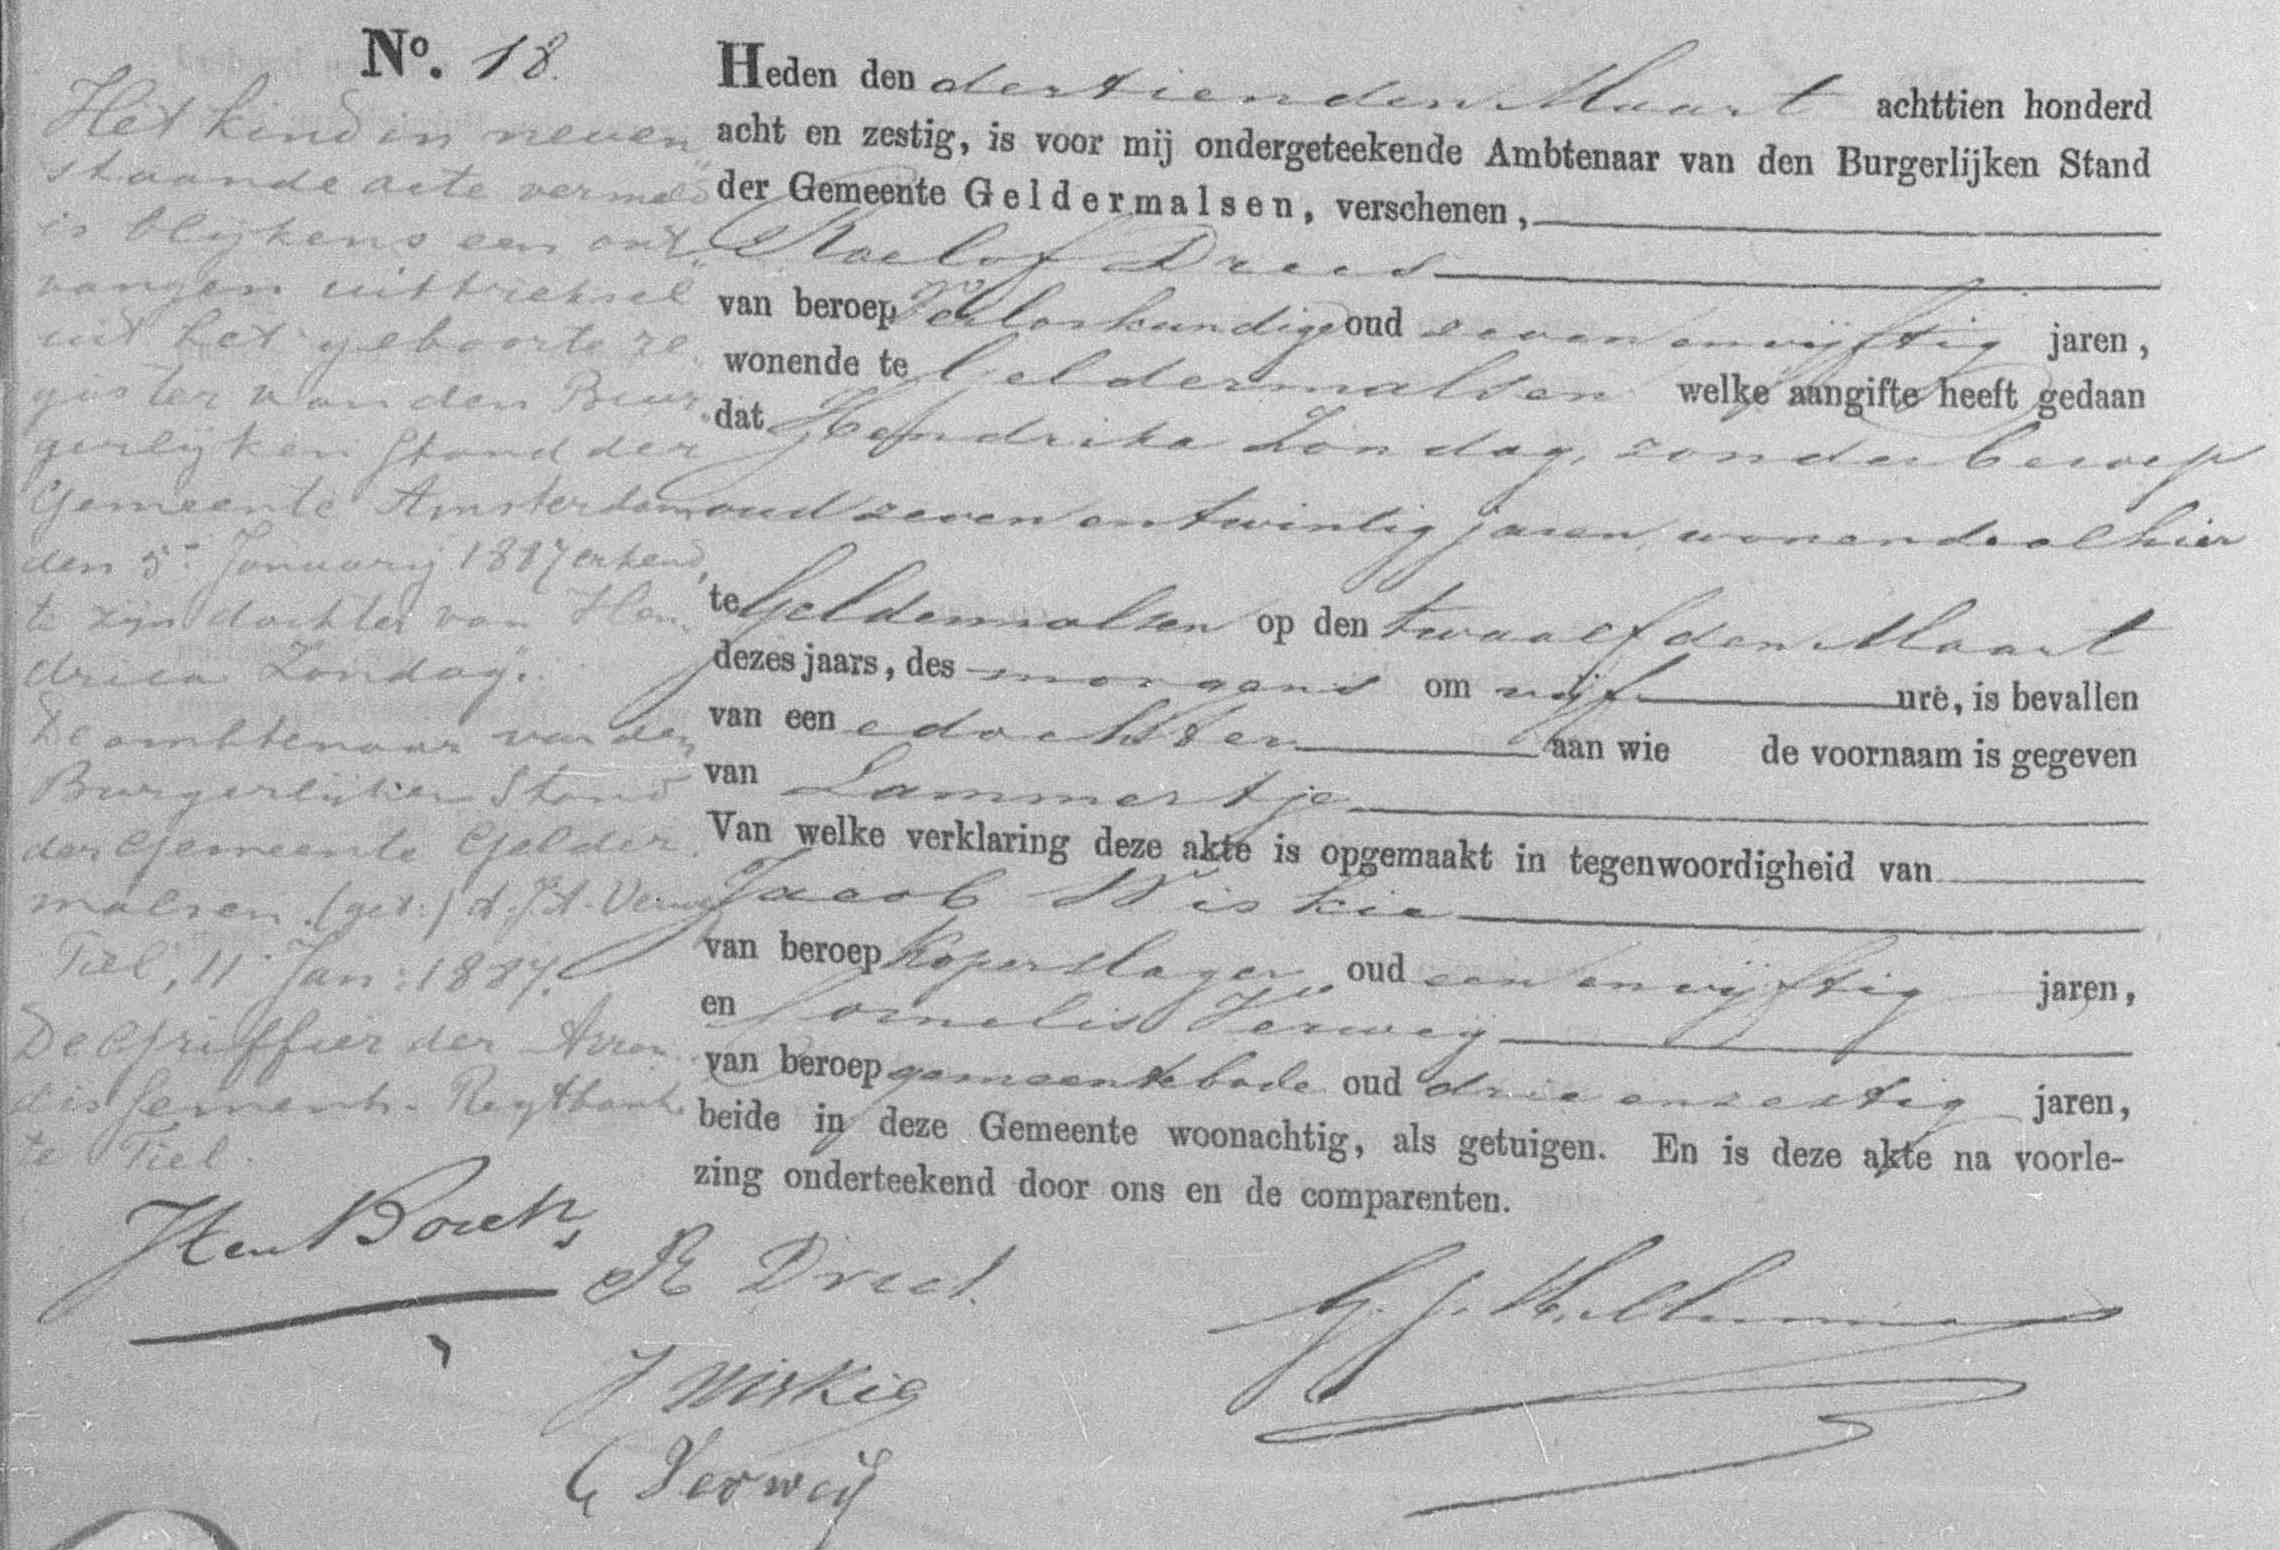 No. 18.
Het kind in neven
staande acte vermeld
is blijkens een ont
vangen uittreksel
uit het geboorte re
gister van den Bur
gerlijken Stand der
Gemeente Amsterdam
den 5e January 1887 erkend
te zijn dochter van Hen
drica Zondag.
De ambtenaar van den
Burgerlijken Stand
der Gemeente Gelder
malsen (get.)
Tiel, 11 Jan: 1887.
De Griffier der Arron
dissements-Regtbank
te Tiel.
Heden den dertienden Maart achttien honderd
acht en zestig, is voor mij ondergeteekende Ambtenaar van den Burgerlijken Stand
der Gemeente Geldermalsen, verschenen,
Roelof Drees
van beroep Verloskundige oud zeven en vijftig jaren,
wonende te Geldermalsen welke aangifte heeft gedaan
dat Hendrika Zondag, zonder beroep
oud zeven en twintig jaren, wonende alhier
te Geldermalsen op den twaalfden Maart
dezes jaars, des morgens om vijf ure, is bevallen
van een e dochter aan wie de voornaam is gegeven
van Lammertje
Van welke verklaring deze akte is opgemaakt in tegenwoordigheid van
Jacob Wiskie
van beroep Koperslager oud een en vijftig jaren,
en Cornelis Verweij
van beroep gemeentebode oud drie en zestig jaren,
beide in deze Gemeente woonachtig, als getuigen. En is deze akte na voorle-
zing onderteekend door ons en de comparenten.
R Drees
J Wiskie
C Verweij